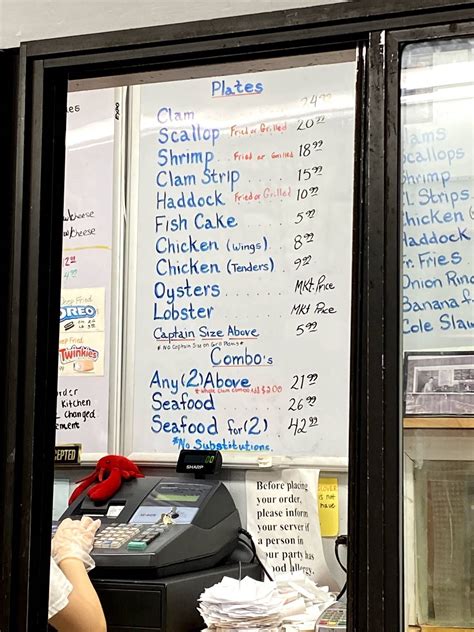 Plates
Clam 24.99
Scallop Fried or Grilled 20.99
Shrimp Fried or Grilled 18.99
Clam Strip 15.99
Haddock Fried or Grilled 10.99
Fish Cake 5.99
Chicken (Wings) 8.99
Chicken (Tenders) 9.99
Oysters Mkt. Price
Lobster Mkt Price
Captain Size Above 5.99
*No Captain Size on
Combo's
Any (2) Above 21.99
*Whole Clam Combo Add $2.00
Seafood 26.99
Seafood for (2) 42.99
*No Substitutions.
w/cheese
w/cheese
Deep Fried
OREO
Fried
Twinkies
Kitchen
Changed
SHARP
Before placing
your order,
please inform
your server if
a person in
your party has
food allergy.
Clams
Scallops
Shrimp
Cl. Strips
Chicken
Haddock
Fr. Fries
Onion Ring
Banana
Cole Slaw